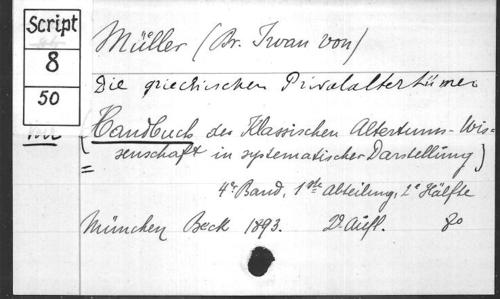 Script
8
50
Müller (Dr. Iwan von)
Die griechischen Privataltertümer
(Handbuch der Klassischen Altertums-Wis-
senschaft in systematischer Darstellung)
4r Band, 1ste Abteilung, 2e Hälfte
München Beck 1893. 2e Aufl. 8o